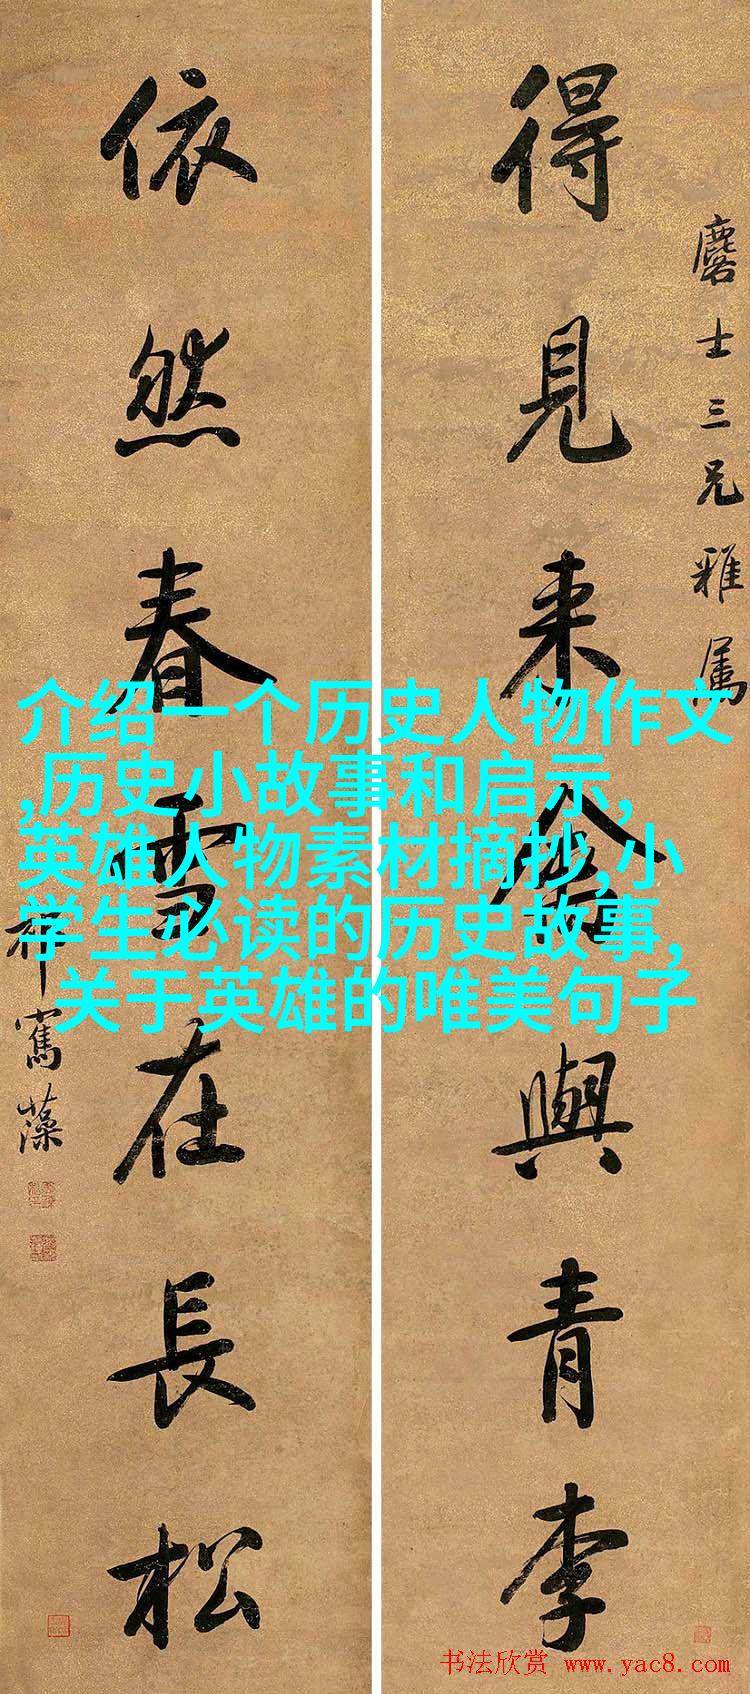 麐士三兄雅属
得見来禽與青李
依然春雪在長松
祁寯藻
介绍一个历史人物作文
,历史小故事和启示,
英雄人物素材摘抄,小
学生必读的历史故事,
关于英雄的唯美句子
书法欣赏 www.yac8.com